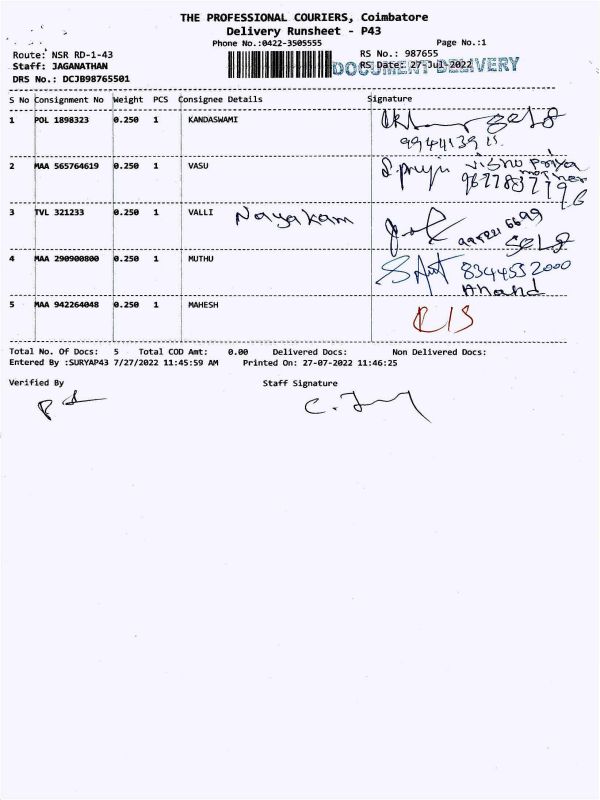 THE PROFESSIONAL COURIERS, Coimbatore
Delivery Runsheet - P43
Phone No.:0422-3505555 Page No.:1
Route: NSR RD-1-43 RS No.: 987655
Staff: JAGANATHAN RS Date: 27-Jul-2022
DOCUMENT DELIVERY
DRS No.: DCJB98765501
S No Consignment No Weight PCS Consignee Details Signature
1 POL 1898323 0.250 1 KANDASWAMI
2 MAA 565764619 0.250 1 VASU S.priya Vishnu Priya
mother
9677837796
3 TVL 321233 0.250 1 VALLI Nayakam
Self
4 MAA 290900800 0.250 1 MUTHU 8344552000
Anand
5 MAA 942264048 0.250 1 MAHESH
Total No. Of Docs: 5 Total COD Amt: 0.00 Delivered Docs: Non Delivered Docs:
Entered By :SURYAP43 7/27/2022 11:45:59 AM Printed On: 27-07-2022 11:46:25
Verified By Staff Signature